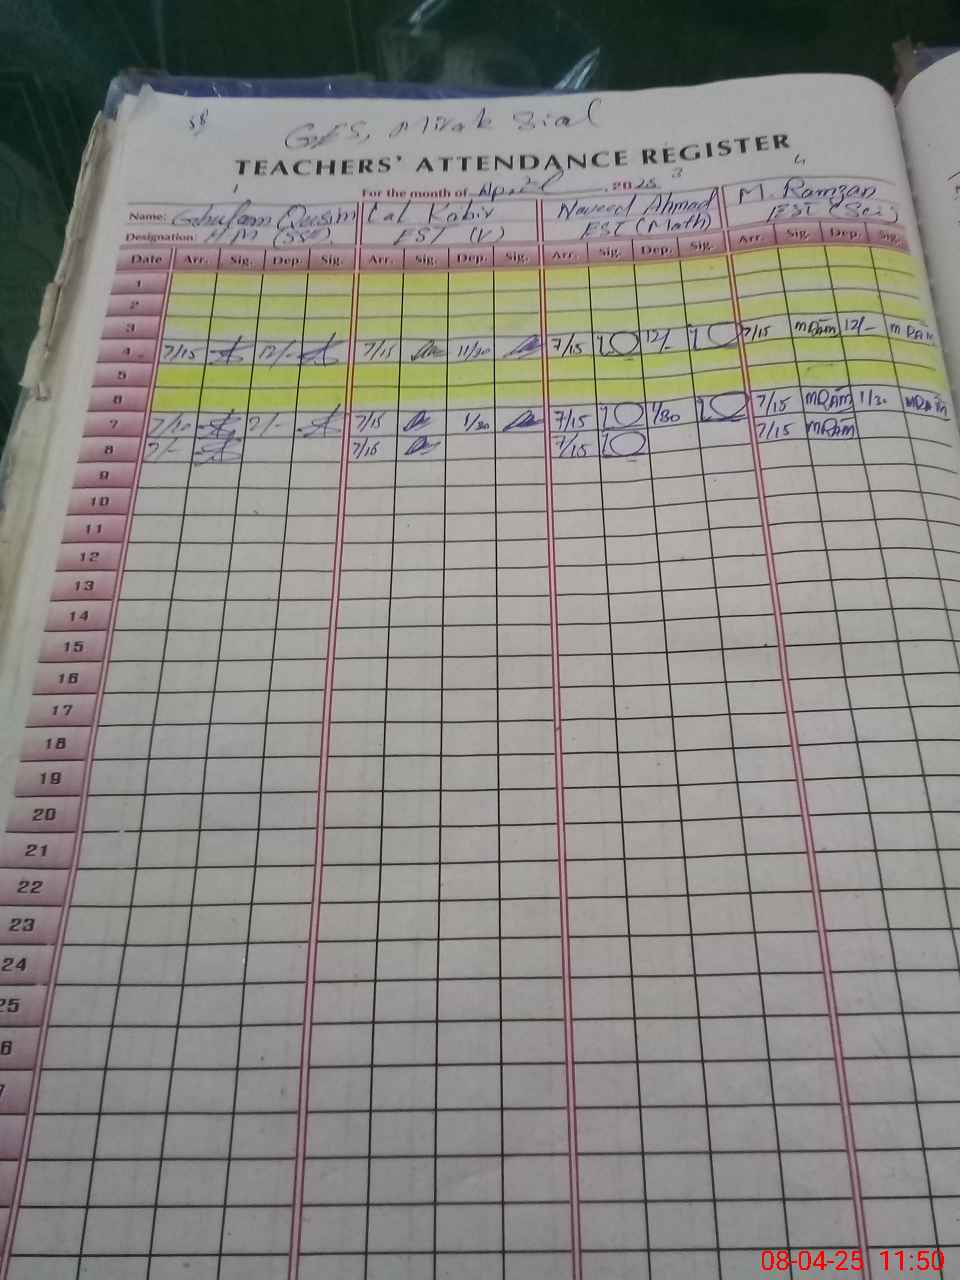 58
GES, Mirak Sial
TEACHERS' ATTENDANCE REGISTER
For the month of April, 2025
1 3 4
Name: Ghulam Qasim Lal Kabir Naveed Ahmad M. Ramzan
Designation: HM (SSE) EST (V) EST (Math) EST (Sci)
Date Arr. Sig. Dep. Sig. Arr. Sig. Dep. Sig. Arr. Sig. Dep. Sig. Arr. Sig. Dep. Sig.
1
2
3
4 7/15 12/- 7/15 11/30 7/15 12/- 7/15 MRAM 12/- MRAM
5
6
7 7/10 7/15 1/30 7/15 1/30 7/15 MRAM 1/30 MRAM
8 7/15 7/15 7/15 MRAM
9
10
11
12
13
14
15
16
17
18
19
20
21
22
23
24
25
6
7
08-04-25 11:50